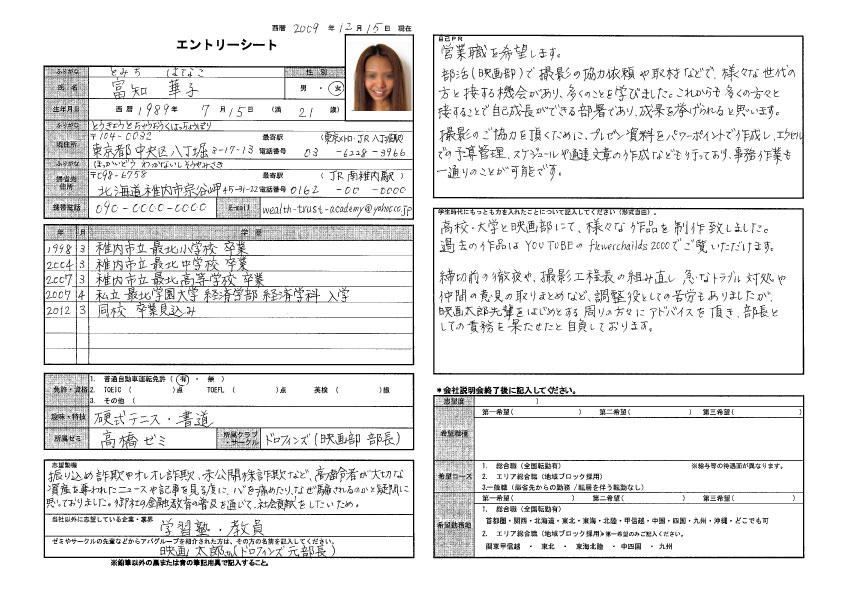 西暦 2009 年 12 月 15 日 現在
エントリーシート
ふりがな とみち はなこ 性別
氏名 富知 華子 男 ・ 女
生年月日 西暦 1989 年 7 月 15 日 (満 21 歳)
ふりがな とうきょうとちゅうおうくはっちょうぼり
現住所 〒104-0032 最寄駅 (東京メトロ・JR 八丁堀駅)
東京都中央区八丁堀3-17-13 電話番号 03 -6228-3966
ふりがな ほっかいどう わっかないしそうやみさき
帰省先住所 〒098-6758 最寄駅 (JR 南稚内駅)
北海道稚内市宗谷岬45-31-22 電話番号 0162 -00 -0000
携帯電話 090-0000-0000 E-mail wealth-trust-academy@yahoo.co.jp
年 月 学歴
1998 3 稚内市立最北小学校 卒業
2004 3 稚内市立最北中学校 卒業
2007 3 稚内市立最北高等学校 卒業
2007 4 私立最北学園大学 経済学部 経済学科 入学
2012 3 同校 卒業見込み
免許・資格
1. 普通自動車運転免許 ( 有 ・ 無 )
2. TOEIC ( )点 TOEFL ( )点 英検 ( )級
3. その他 ( )
趣味・特技 硬式テニス・書道
所属ゼミ 高橋ゼミ 所属クラブ・サークル ドロフィンズ(映画部 部長)
志望動機
振り込め詐欺やオレオレ詐欺、未公開株詐欺など、高齢者が大切な
資産を奪われたニュースや記事を見る度に、心を痛めたり、なぜ騙されるのかと疑問に
思っておりました。御社の金融教育の普及を通じて、社会貢献をしたいため。
当社以外に志望している企業・業界
学習塾・教員
ゼミやサークルの先輩などからアバグループを紹介された方は、その方の名前を記入してください。
映画 太郎さん(ドロフィンズ元部長)
※鉛筆以外の黒または青の筆記用具で記入すること。
自己PR
営業職を希望します。
部活(映画部)で撮影の協力依頼や取材などで、様々な世代の
方と接する機会があり、多くのことを学びました。これからも多くの方々と
接することで自己成長ができる部署であり、成果を挙げられると思います。
撮影のご協力を頂くために、プレゼン資料をパワーポイントで作成し、エクセル
での予算管理、スケジュールや通達文章の作成なども行っており、事務作業も
一通りのことが可能です。
学生時代にもっとも力を入れたことについて記入してください(形式自由)。
高校・大学と映画部にて、様々な作品を制作致しました。
過去の作品はYOUTUBEのflowerchailds2000でご覧いただけます。
締切前の徹夜や、撮影工程表の組み直し 急なトラブル対処や
仲間の意見の取りまとめなど、調整役としての苦労もありましたが、
映画太郎先輩をはじめとする周りの方々にアドバイスを頂き、部長と
しての責務を果たせたと自負しております。
*会社説明会終了後に記入してください。
志望度 ( )
希望職種 第一希望( ) 第二希望( ) 第三希望( )
希望コース
1. 総合職(全国転勤有) ※給与等の待遇面が異なります。
2. エリア総合職(地域ブロック採用)
3.一般職(帰省先からの勤務 /転居を伴う転勤なし)
第一希望( ) 第二希望( ) 第三希望( )
希望勤務地
1. 総合職(全国転勤有)
首都圏・関西・北海道・東北・東海・北陸・甲信越・中国・四国・九州・沖縄・どこでも可
2. エリア総合職(地域ブロック採用)※第一希望のみご記入ください。
関東甲信越 ・ 東北 ・ 東海北陸 ・ 中四国 ・ 九州